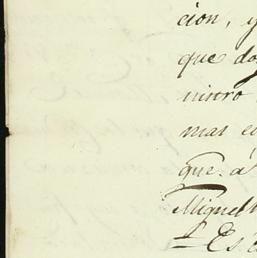 cion, y
que do
nistro
mas e
que. á
Miguel
Es